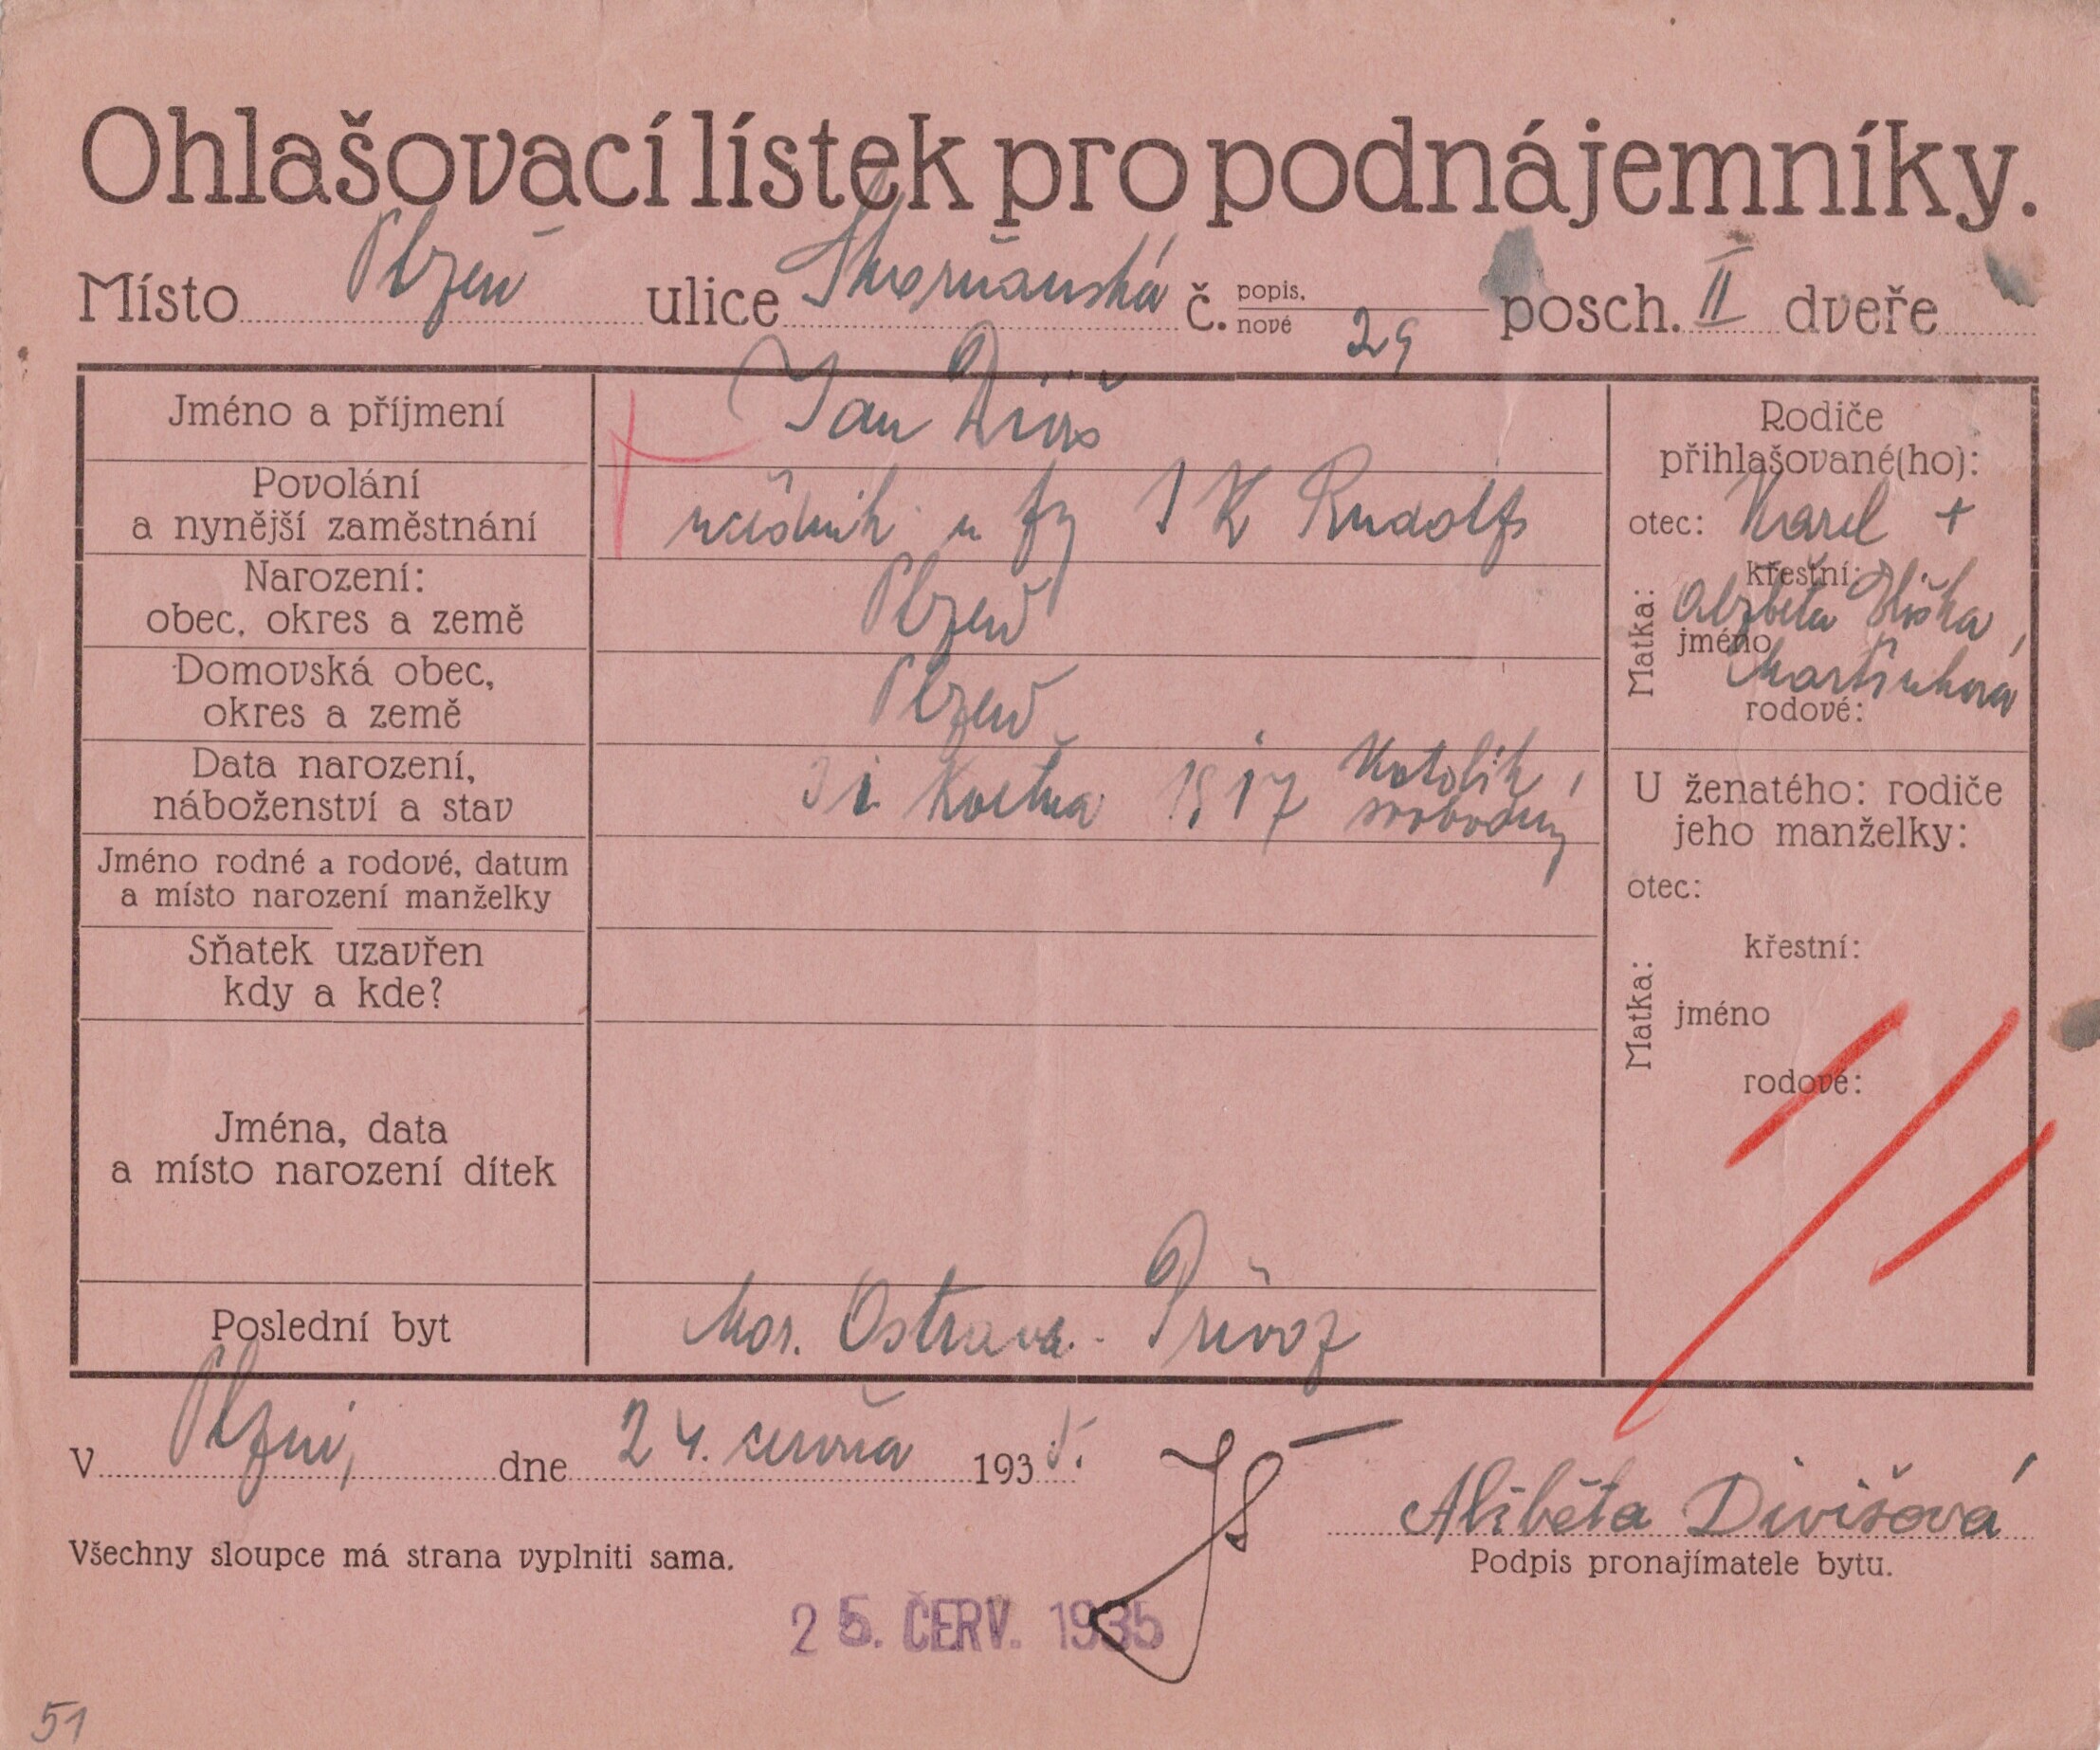 Ohlašovací lístek pro podnájemníky.
Místo Plzeň ulice Skvrňanská č. popis. nové 29 posch. II dveře
Jméno a příjmení Jan
Povolání
a nynější zaměstnání úředník u fy Rudolfs
Narození:
obec, okres a země Plzeň
Domovská obec,
okres a země Plzeň
Data narození,
náboženství a stav 31 května 1917 Katolík,
svobodný
Jméno rodné a rodové, datum
a místo narození manželky
Sňatek uzavřen
kdy a kde?
Jména, data
a místo narození dítek
Poslední byt Mor. Ostrava - Přívoz
Rodiče
přihlašované(ho):
otec: Karel +
Matka:
křestní:
Alzběta
jméno
rodové:
U ženatého: rodiče
jeho manželky:
otec:
Matka:
křestní:
jméno
rodové:
V Plzni, dne 24. června 1935.
Alžběta Divišová
Všechny sloupce má strana vyplniti sama.
Podpis pronajímatele bytu.
25. ČERV. 1935
51